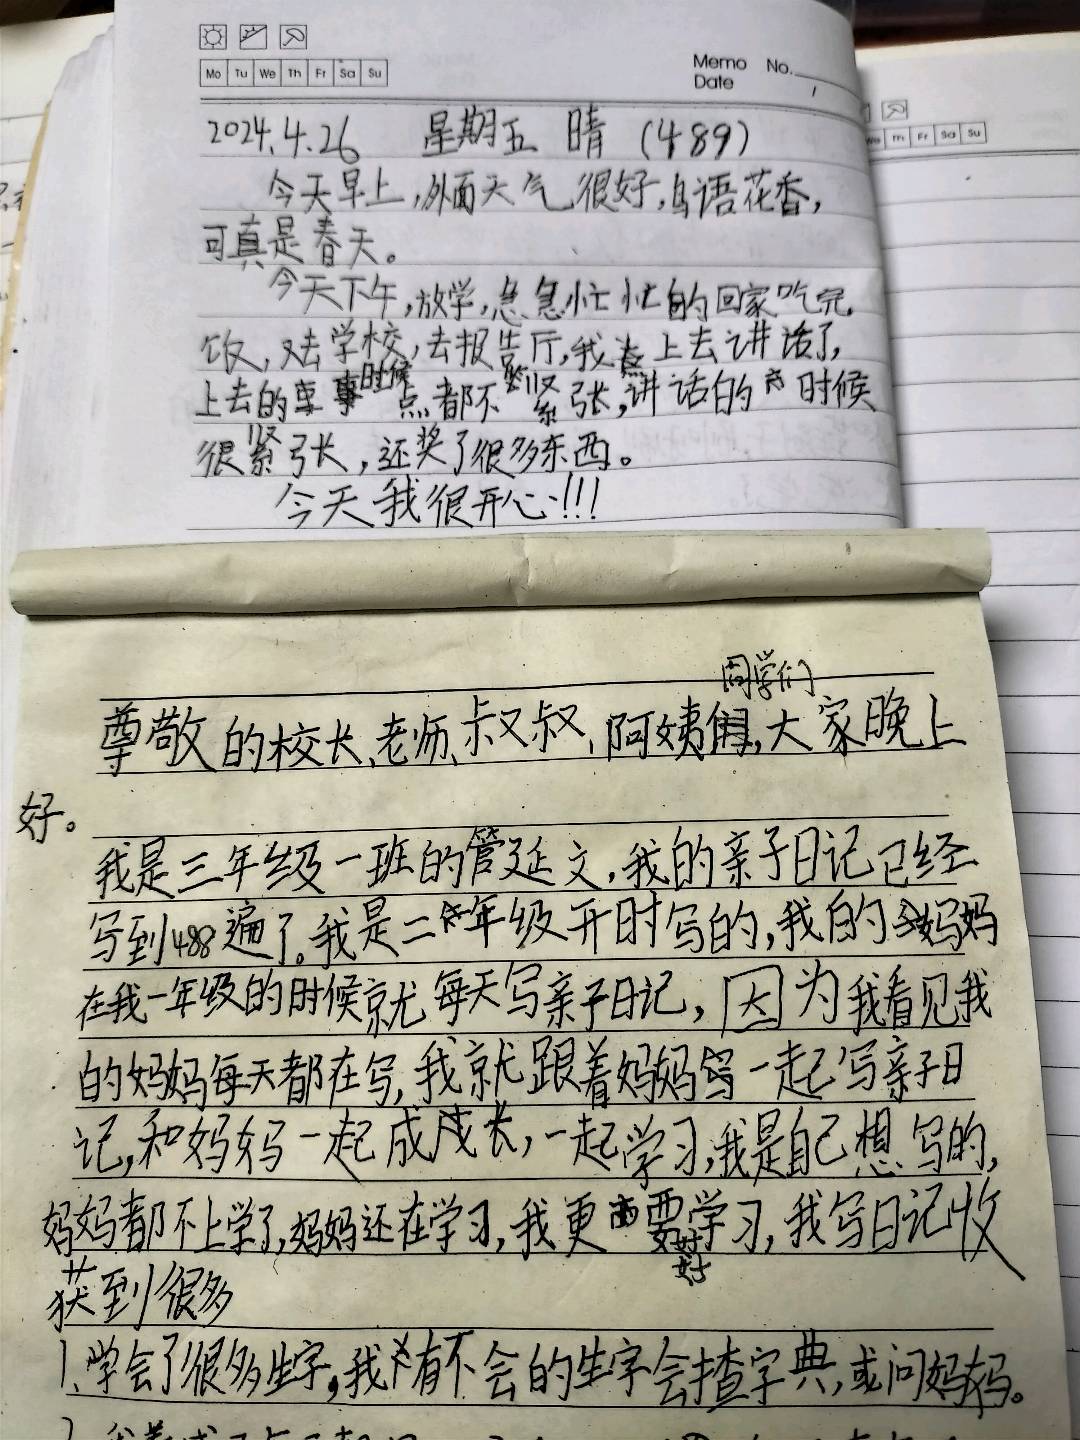 Mo Tu We Th Fr Sa Su
Memo No.
Date
Fr Sa Su
2024.4.26 星期五 晴 (489)
今天早上,外面天气很好,鸟语花香,
可真是春天。
今天下午,放学,急急忙忙的回家吃完
饭,又去学校,去报告厅,我上去讲话了,
上去的时候一点都不紧张,讲话的时候
很紧张,还奖了很多东西。
今天我很开心!!!
同学们
尊敬的校长、老师、叔叔、阿姨,大家晚上
好。
我是三年级一班的管延文,我的亲子日记已经
写到488遍了。我是二年级开时写的,我的妈妈
在我一年级的时候就每天写亲子日记,因为我看见我
的妈妈每天都在写,我就跟着妈妈一起写亲子日
记,和妈妈一起成长,一起学习,我是自己想写的,
妈妈都不上学了,妈妈还在学习,我更要好好学习,我写日记收
获到很多
1、学会了很多生字,我有不会的生字会查字典,或问妈妈。